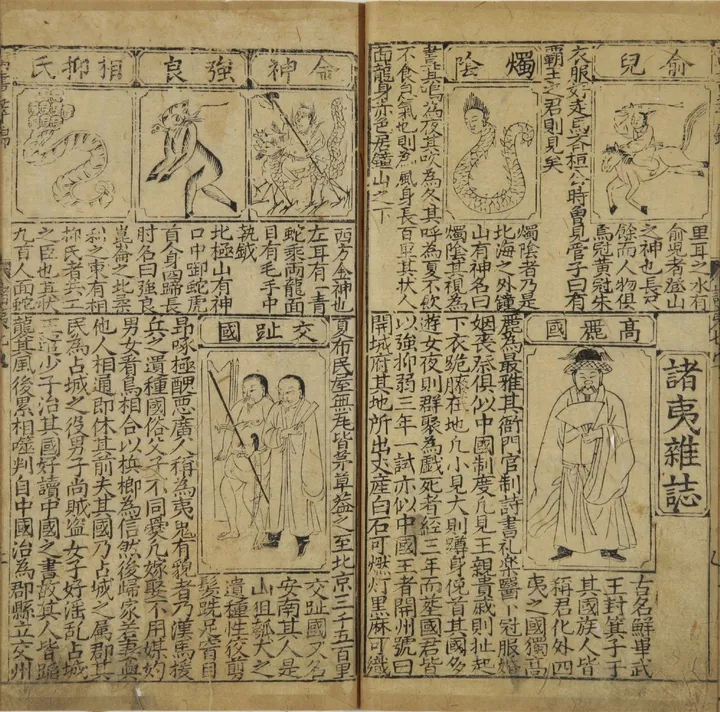 俞兒
里耳之水有
俞兒者登山
之神也長
餘而人物俱
焉冠黃冠朱
衣服好走馬齊桓公時曾見管子曰有
霸王之君則見矣
燭陰
燭陰者乃是
北海之外鐘
山有神名曰
燭陰其視為
晝其瞑為夜其吹為冬其呼為夏不飲
不食息氣也則為風身長百里其狀人
面龍身赤色居鐘山之下
諸夷雜誌
高麗國
古名鮮卑武
王封箕子于
其國族人皆
稱君化外四
夷之國獨高
麗為最雅其衙門官制詩書礼樂醫卜冠服婚
姻喪祭俱似中國制度凡見王親貴戚則扯起
下衣跪膝在地凢小見大則蹲身俛首其國多
遊女夜則群聚為戲死者經三年而塟國君皆
以強抑弱三年一試亦似中國王者開州號曰
開城府其地所出丈産白石可燃灯黑麻可織
金神
西方金神也
左耳有一青
蛇乘兩龍面
目有毛手中
執鉞
強良
北極山有神
口中啣蛇虎
首人身四蹄長
肘名曰強良
相抑氏
崑崙之北柔
利之東有相
柳氏者共工
之臣也其狀
九百人面蛇
夏布民屋無瓦皆茅草葢之至北京三千五百里
交趾國
交趾國又名
安南其人是
山狙瓠犬之
遺種性狡剪
髪跣足窅目
昂啄極醜惡廣人稱為夷鬼有貌者乃漢馬援
兵之遺種國俗父子不同爱凡嫁娶不用媒妁
男女看爲相合以梹榔為信然後歸家若妻與
他人相通即休其前夫其國乃占城之属郡其
民為占城之役男子尚賊盗女子好滛乱占城
王遣少子治其國好讀中國之書故其人皆蹈
龍其風後累相噬判自中國治為郡縣立安州